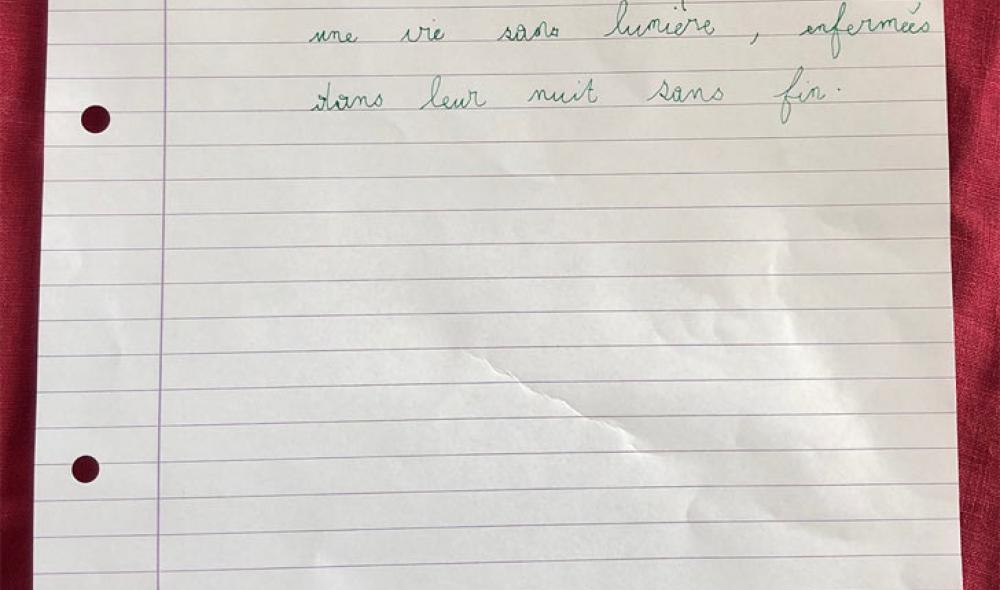 une vie sans lumière, enfermées
dans leur nuit sans fin.